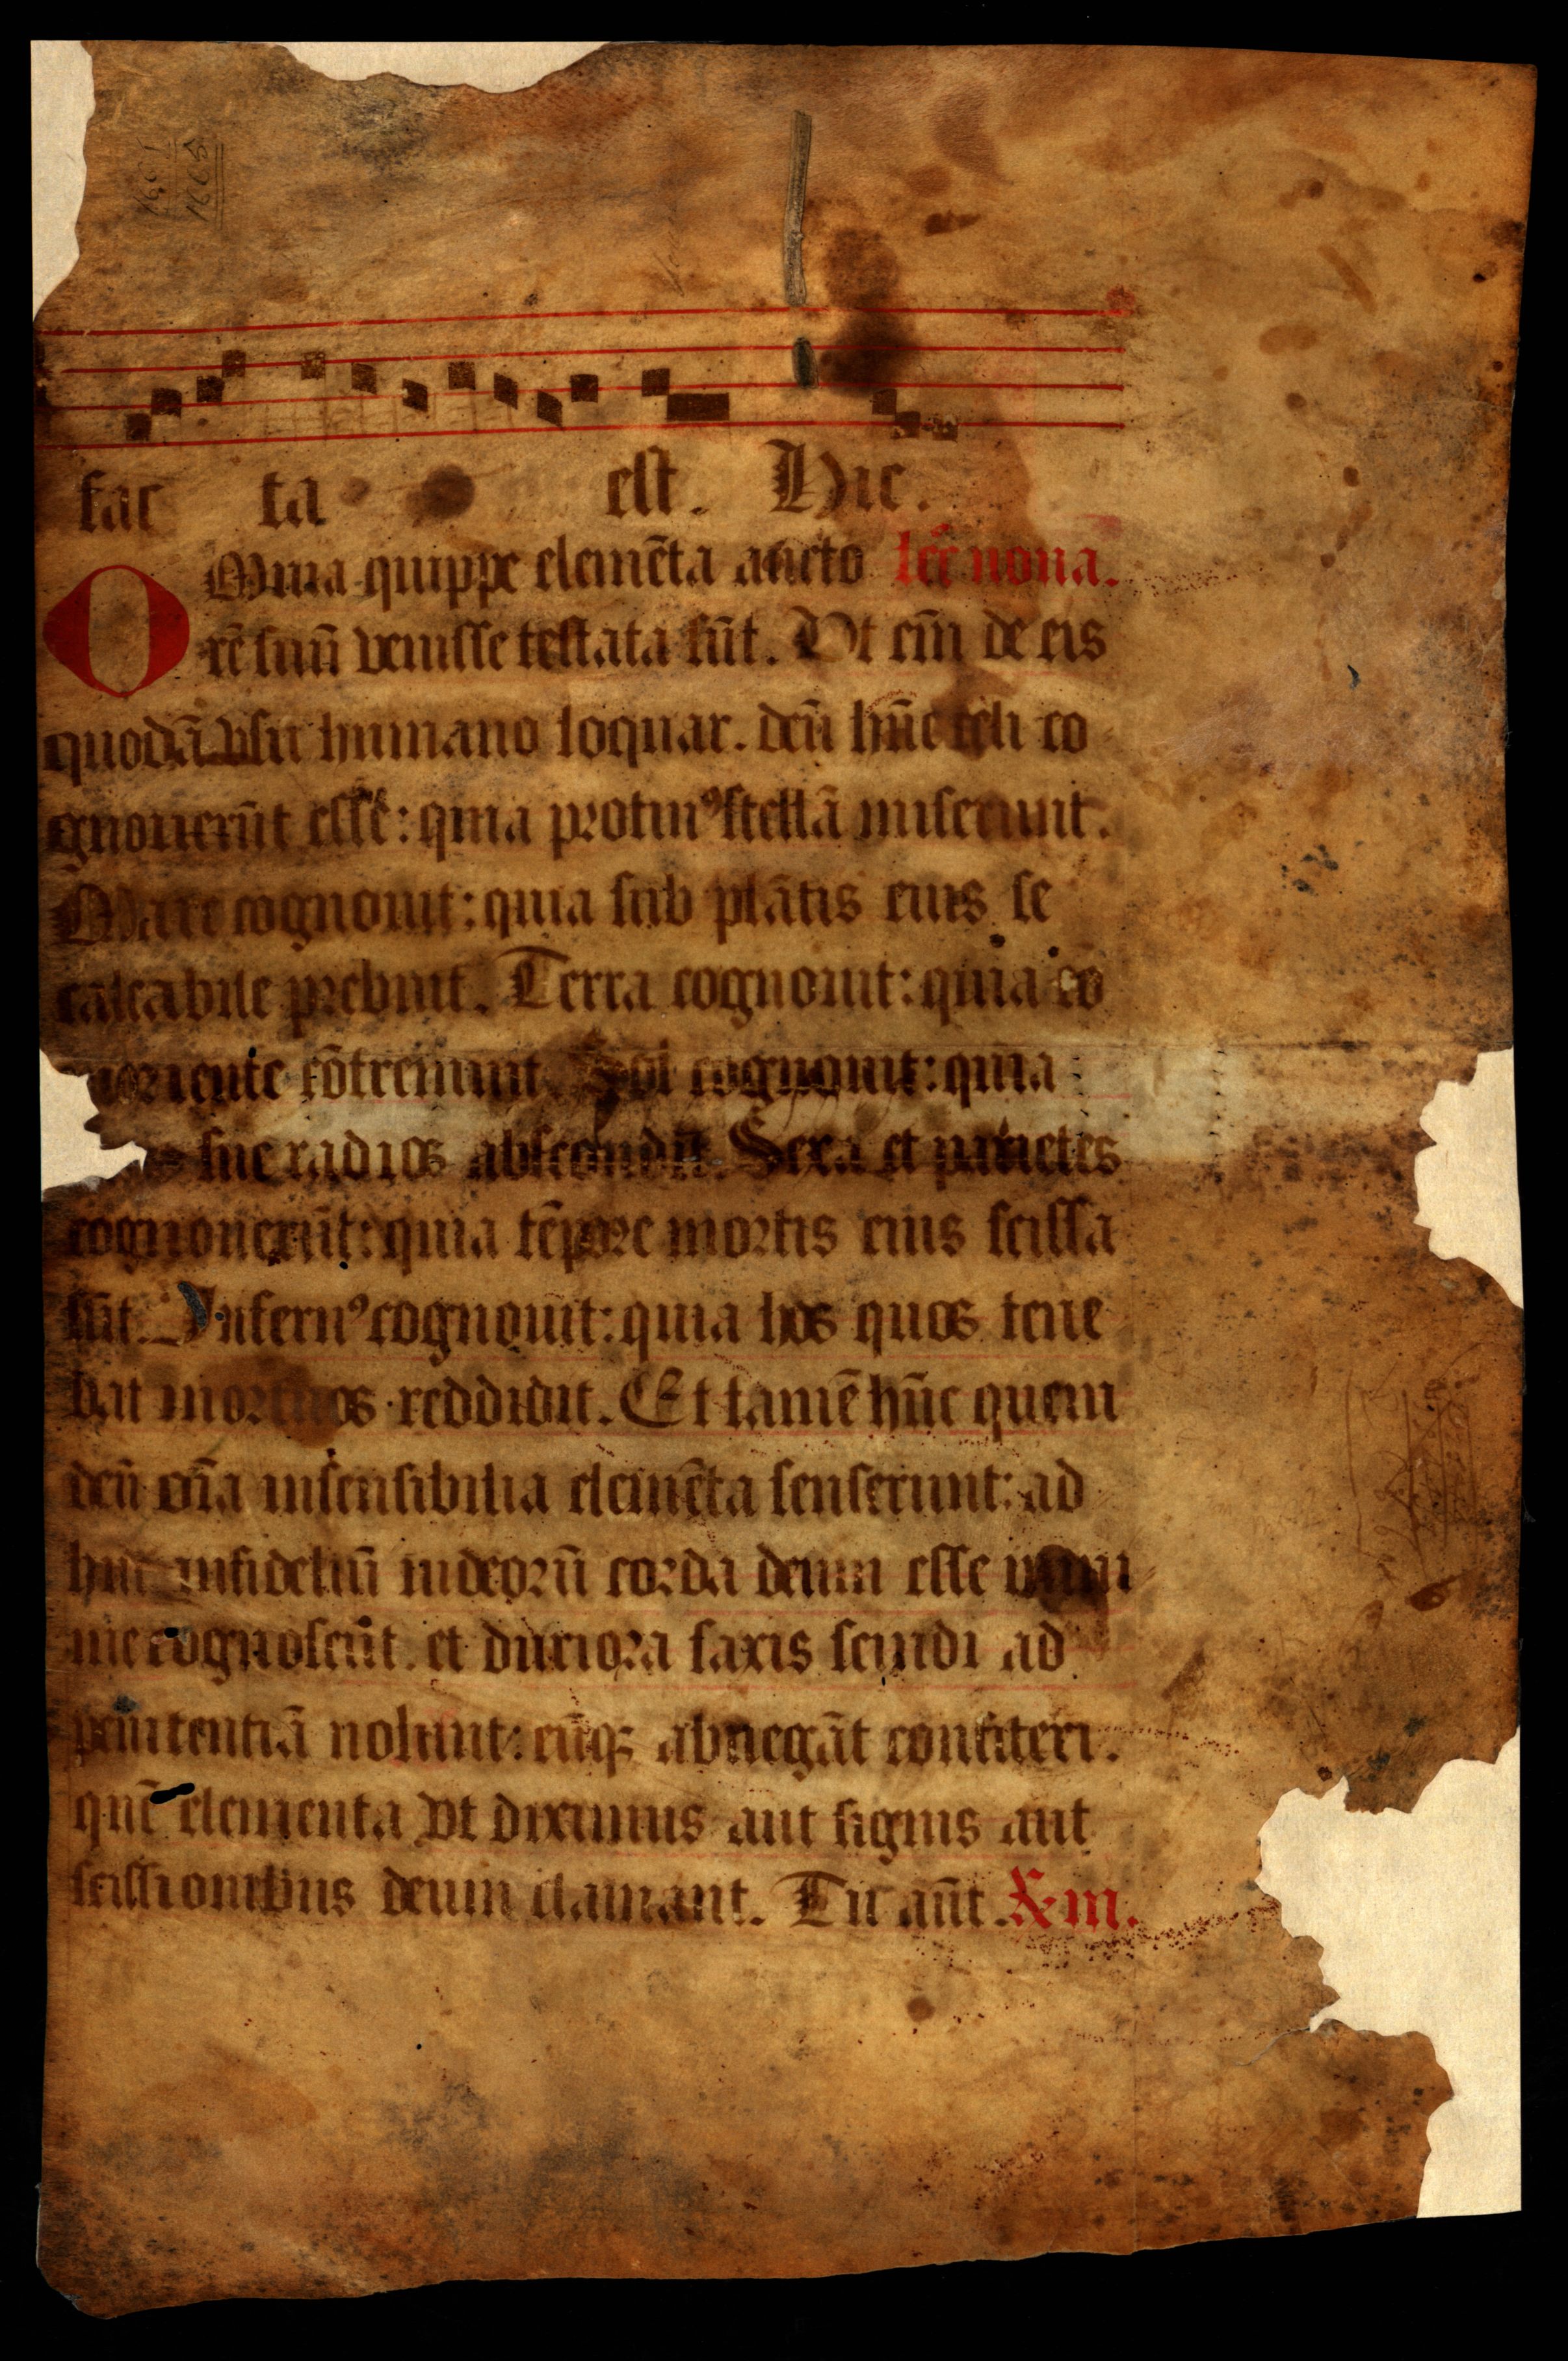 1665
fac ta est. Hic.
OMnia quippe elemēta aucto lec̄ nona.
rē suū venisse testata sūt. Vt eni̅ de eis
quodā vsu humano loquar. deū hūc celi co
gnouerūt esse: quia protinꝰ stellā miserunt.
Mare cognouit: quia sub plātis eius se
calcabile prebuit. Terra cognouit: quia eo
moriente cōtremuit. Sol cognouit: quia
sue radios abscondit. Sexa et parietes
cognouerūt: quia tēpore mortis eius scissa
sūt. Infernꝰ cognouit: quia hos quos tene
bat mortuos reddidit. Et tamē hūc quem
deū oīa insensibilia elemēta senserunt: ad
huc infideliū iudeorū corda deum esse mini
me cognoscūt. et duriora saxis scindi ad
penitentiā nolunt: eūqꝫ abnegāt confiteri.
quē elementa vt diximus aut signis aut
scissionibus deum clamant. Tu aūt. Rm.